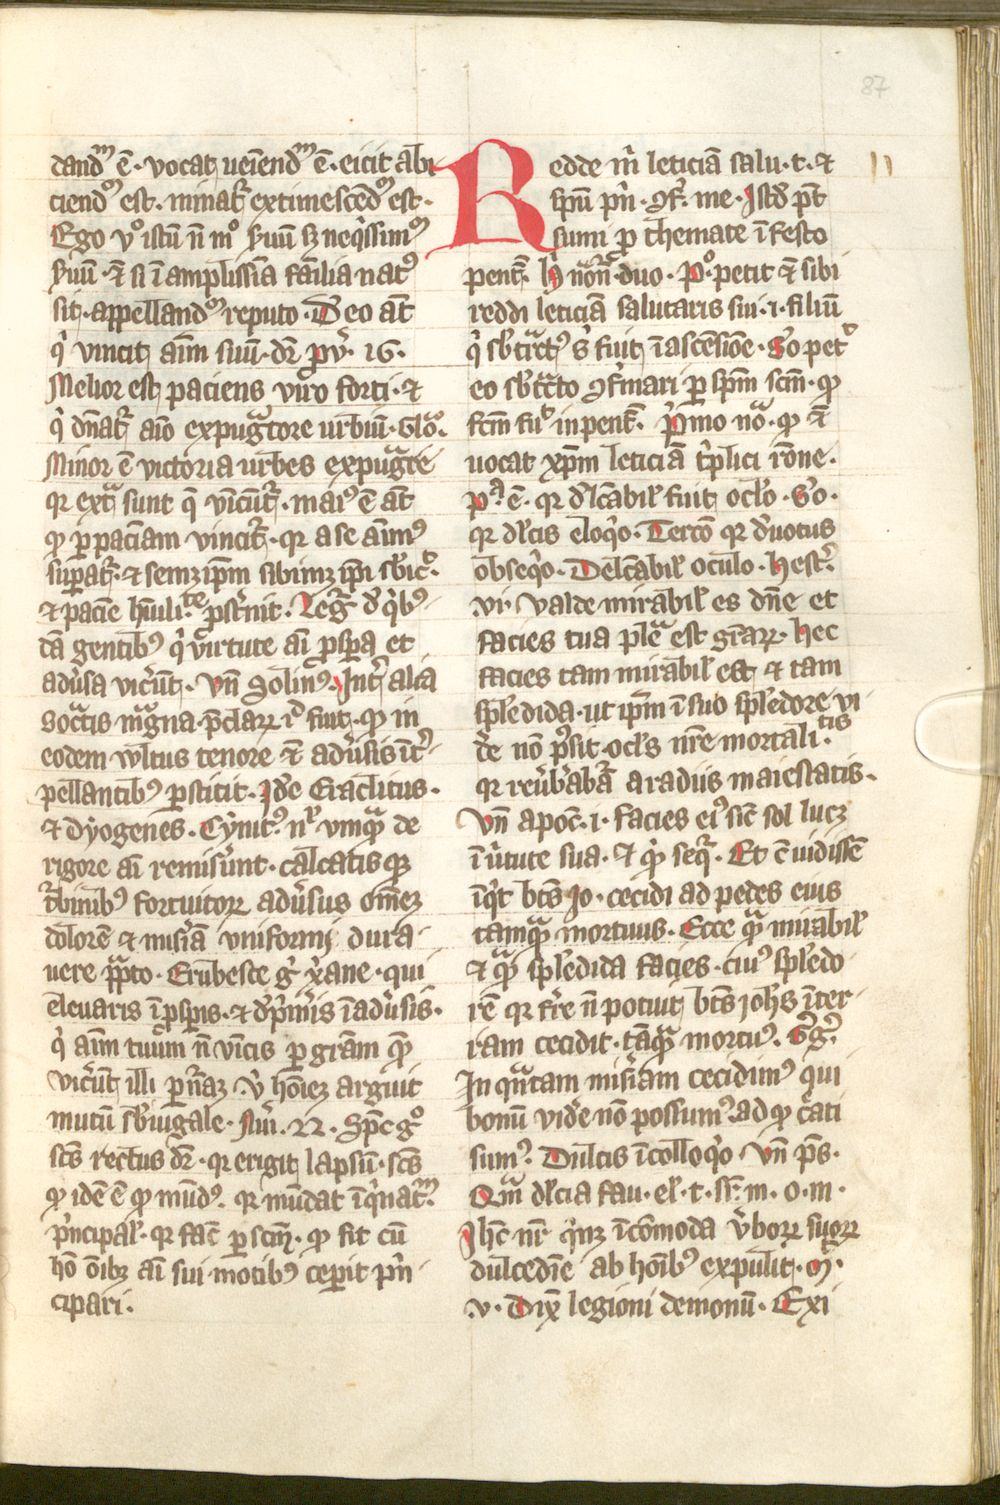 87
dandꝰ ē· vocat᷒ ueiendꝰ ē· eicit᷒ abi
ciendꝰ est· minat᷑ extimescēdꝰ est·
Ego vº istū n̄ mº s̄uū sꝫ neq̇ssimꝰ
s̄uū· ⁊ si ī amplissīa famīlia natꝰ
sit· appellandꝰ reputo· Deo aūt
q̇ vincit aīm suū· dr̄ pꝓv̄· 16·
Melior est paciens viro forti· ⁊
q̇ dn̄at᷑ aīo expugᵃtore urbiū· Gloᵃ·
Minor ē victoria urbes expugᵃre
qꝛ extᵃ sunt q̄ vīcūt᷑· maiꝰ ē aūt
qꝫ ꝑ paciam vincit᷑· qꝛ a se aīmꝰ
suꝑat᷑· ⁊ semꝫ ip̄m sibimꝫ ip̄i sb̄ic·
⁊ pacīe hūīli·te pst̄nit· Leg᷑ d̓ q̇bꝰ
dā gentibꝰ q̇ virtute aī ꝓsꝑa et
adu̓sa vic̓ūt· Vn̄ Solinꝰ· Int̓ alia
Soc̄tis magna p̄claꝝ id̓ fuit· qꝫ in
eodem vultus tenore ⁊ adu̓sis īt̓
pellantibꝰ ꝑstitit· Id̄e Eraclitus·
⁊ dyogenes· Cynicꝰ nᵘ vmqᵃ de
rigore aī remis̓unt· calcatis qꝫ
t̓binibꝰ fortuitoꝝ adu̓sus om̄eꝫ
dolorē ⁊ mis̓iā uniformi dura
uere ꝓpᵒto· Erubesce gͦ xᵃne· qui
elevaris ī ꝓsꝑis· ⁊ dep̓m̓is ī adu̓sis·
q̇ aīm tuūm n̄ vīcis ꝑ grām qᵐ
vic̓ūt illi ꝑ nᵃaꝫ· v̓ hoīeꝫ arguit
mutū sb̓iugale· Nūi· 22· Spēc gͦ
scs̄ rectus dr̄· qꝛ erigit lapsū· scs̄
qꝫ idē ē qꝫ mūdꝰ· qꝛ mūdat īq̇natᵐ·
p̓ncipal᷑· qꝛ fac̄ ꝑ scm̄· qꝫ fit cū
hō oībꝫ aī sui motibꝰ ceperit p̓n
cipari·
Redde m̓ leticiā salu· t· ⁊
sp̄ū pn̓· 9f̓· me· Istd̓ pt̄
sumi ꝓ themate ī festo
pent̄· h̓ nōn̄ᵃ duo· Pº· petit ⁊ sibi
reddi leticiā salutaris sui· i· filiū
q̇ sb̓tractꝰ s̓ fuit ī ascēsiōe· Sºo pet᷑
eo sb̓tᵃcto 9f̓mari ꝑ sp̄m scm̄· qꝫ
fcm̄ fuᵗ in pent̄· P̓mo noᵃ· qꝫ ⁊
uocat xp̄m leticiā t̓plici rōne·
pᵃ ē· qꝛ dl̓cabil᷑ fuit oclo· Sºo·
qꝛ dl̓cis eloq̇o· Tercō qꝛ d̓uotus
obseq̇o· Delcabil᷑ oculo· hest᷑·
·vi· Valde mirabil᷑ es dn̄e et
facies tua pleᵃ est gr̄aꝝ· hec
facies tam mirabil᷑ est ⁊ tam
splēdida· ut ip̄m ī suo splēdore vi
de nō p̓sit· ocl̓s nr̄e mortali·tis
qꝛ reu̓b̓abāt a radiis maiestatis·
Vn̄ apoc̄· i· facies eiꝰ sic̄ sol lucꝫ
ī u̓tute sua· ⁊ q̓ seq̄r· Et cū vidissē
īq̓t bt̄s Jo· cecidi ad pedes eius
tamqᵃ mortuus· Ecce qᵃ mirabil᷑
⁊ qᵃ splēdida facies· cuiꝰ splēdo
rē qꝛ fr̄e n̄ potuit bt̄s Joh̄s īter
ram cecidit· tāqᵃ mortuꝰ· Sʒ gͦ
In qᵃntam mis̓iam cecidimꝰ qui
bonū vid̓e nō possumꝰ ad qꝫ c̓ati
sumꝰ· Dulcis ī colloq̇o· Vn̄ ps̄·
Qᵐ dl̓cia fau· el· t· sf̄· m· o· m·
Ihc̄ nr̄ q̇nꝫ īcōmoda v̓boꝝ suoꝝ
dulcedīe ab hoībꝰ expulit· M̓·
·v· Dix̄ legioni demonū· Exi